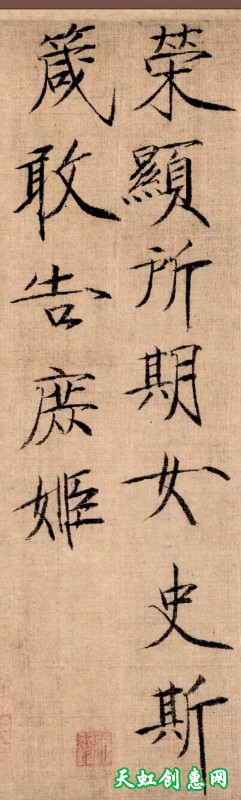 榮顯所期女史斯
箴敢告庶姬
天虹创惠网